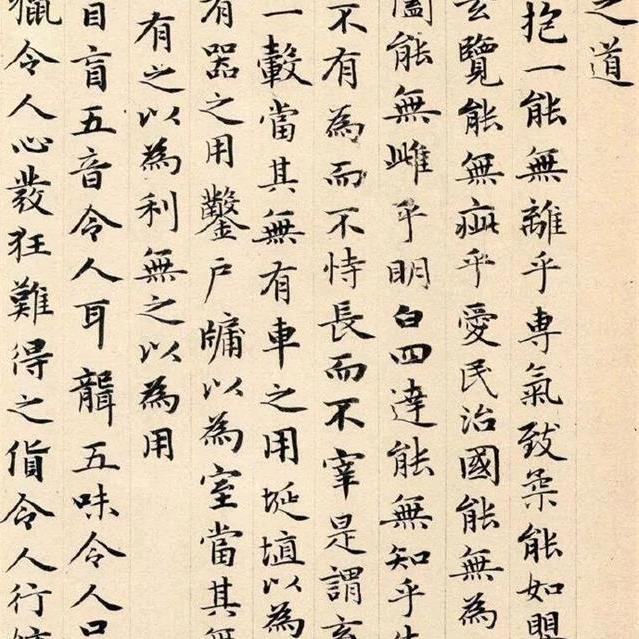 之道
抱一能無離乎専氣致柔能如
玄覽能無疵乎愛民治國能無為
闔能無雌乎明白四達能無知乎
不有為而不恃長而不宰是謂玄
一轂當其無有車之用埏埴以為
有器之用鑿戶牖以為室當其無
有之以為利無之以為用
目盲五音令人耳聾五味令人口
獵令人心發狂難得之貨令人行